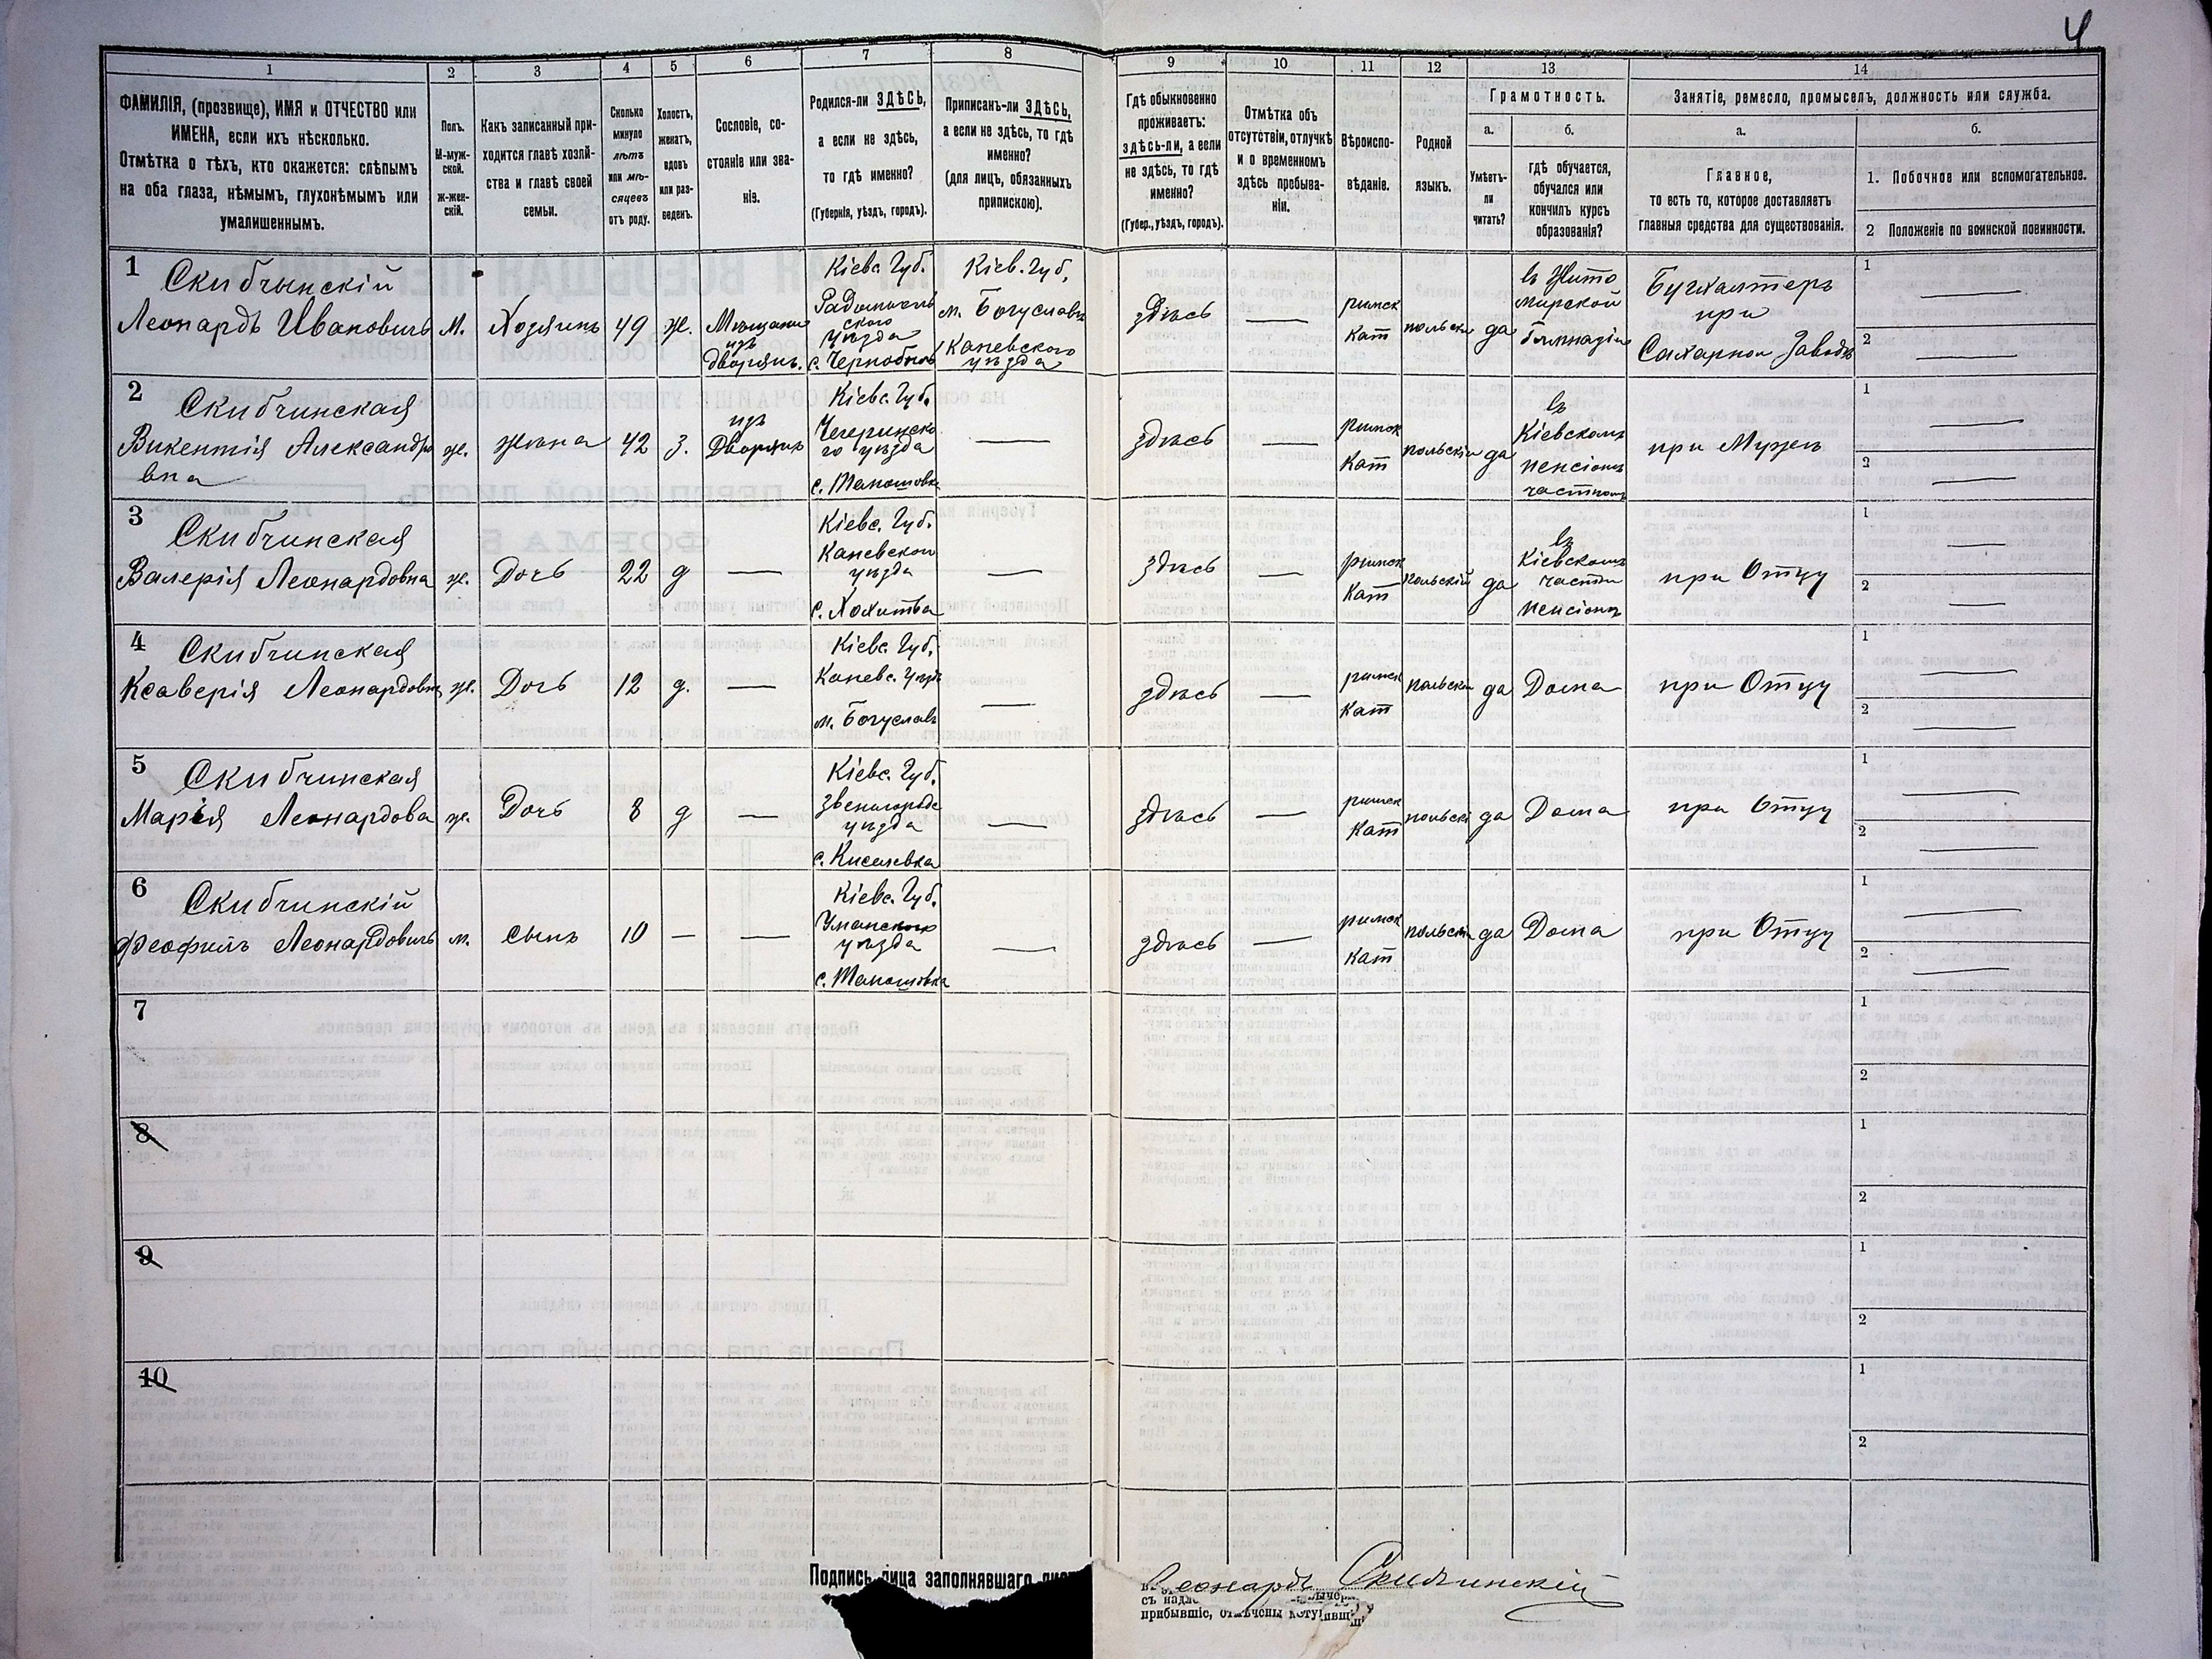 4
1 2 3 4 5 6 7 8 9 10 11 12 13 14
ФАМИЛІЯ, (прозвище), ИМЯ и ОТЧЕСТВО или
ИМЕНА, если ихъ нѣсколько.
Отмѣтка о тѣхъ, кто окажется: слѣпымъ
на оба глаза, нѣмымъ, глухонѣмымъ или
умалишеннымъ.
Полъ.
М-муж-
ской.
Ж-жен-
скій.
Какъ записанный при-
ходится главѣ хозяй-
ства и главѣ своей
семьи.
Сколько
минуло
лѣтъ
или мѣ-
сяцевъ
отъ роду.
Холостъ,
женатъ,
вдовъ
или раз-
веденъ.
Сословіе, со-
стояніе или зва-
ніе.
Родился-ли ЗДѢСЬ,
а если не здѣсь,
то гдѣ именно?
(Губернія, уѣздъ, городъ).
Приписанъ-ли ЗДѢСЬ,
а если не здѣсь, то гдѣ
именно?
(для лицъ, обязанныхъ
припискою).
Гдѣ обыкновенно
проживаетъ:
здѣсь-ли, а если
не здѣсь, то гдѣ
именно?
(Губер., уѣздъ, городъ).
Отмѣтка объ
отсутствіи, отлучкѣ
и о временномъ
здѣсь пребыва-
ніи.
Вѣроиспо-
вѣданіе.
Родной
языкъ.
Грамотность.
а.
Умѣетъ-
ли
читать?
б.
гдѣ обучается,
обучался или
кончилъ курсъ
образованія?
Занятіе, ремесло, промыселъ, должность или служба.
а.
Главное,
то есть то, которое доставляетъ
главныя средства для существованія.
б.
1. Побочное или вспомогательное.
2 Положеніе по воинской повинности.
1
Скибчынскій
Леонардъ Ивановичъ
М.
Хозяинъ
49
ж.
Мѣщанинъ
изъ
дворянъ.
Кіевс. Губ.
Радомысль
ского
уѣзда
с. Чернобыль
Кіев. Губ,
м. Богуславъ
Каневского
уѣзда
здѣсь
римск
кат
польскій
да
въ Жито
мирской
Гимназіи
Бухгалтеръ
при
Сахарном Заводѣ
1
2
2
Скибчинская
Викентія Александро
вна
ж.
жена
42
З.
изъ
Дворянъ
Кіевс. Губ.
Чегеринско
го уѣзда
здѣсь
римск
Кат
польскій
да
въ
Кіевскомъ
пенсіонѣ
частномъ
при Мужѣ
1
2
3
Скибчинская
Валерія Леонардовна
ж.
Дочь
22
д
Кіевс. Губ.
Каневскои
уѣзда
с. Хохитва
здѣсь
римск
Кат
польскій
да
въ
Кіевскомъ
частн
пенсіонѣ
при Отцу
1
2
4
Скибчинская
Ксаверія Леонардовна
ж.
Дочь
12
д.
Кіевс. Губ.
Каневс. Уѣзд
м. Богуславъ
здѣсь
римск
Кат
польскій
да
Дома
при Отцу
1
2
5
Скибчинская
Марія Леонардова
ж.
Дочь
8
д
Кіевс. Губ.
Звенигородс
уѣзда
с. Киселевка
здѣсь
римск
Кат
польскі
да
Дома
при отцу
1
2
6
Скибчинскій
Феофилъ Леонардовичъ
м.
сынъ
10
Кіевс. Губ.
Уманского
уѣзда
здѣсь
римск
Кат
польскій
да
Дома
при Отцу
1
2
7
1
2
8
1
2
9
1
2
10
1
2
Подпись лица заполнявшаго
Леонардъ Скибчинскій
съ
прибывшіе, отмѣчены